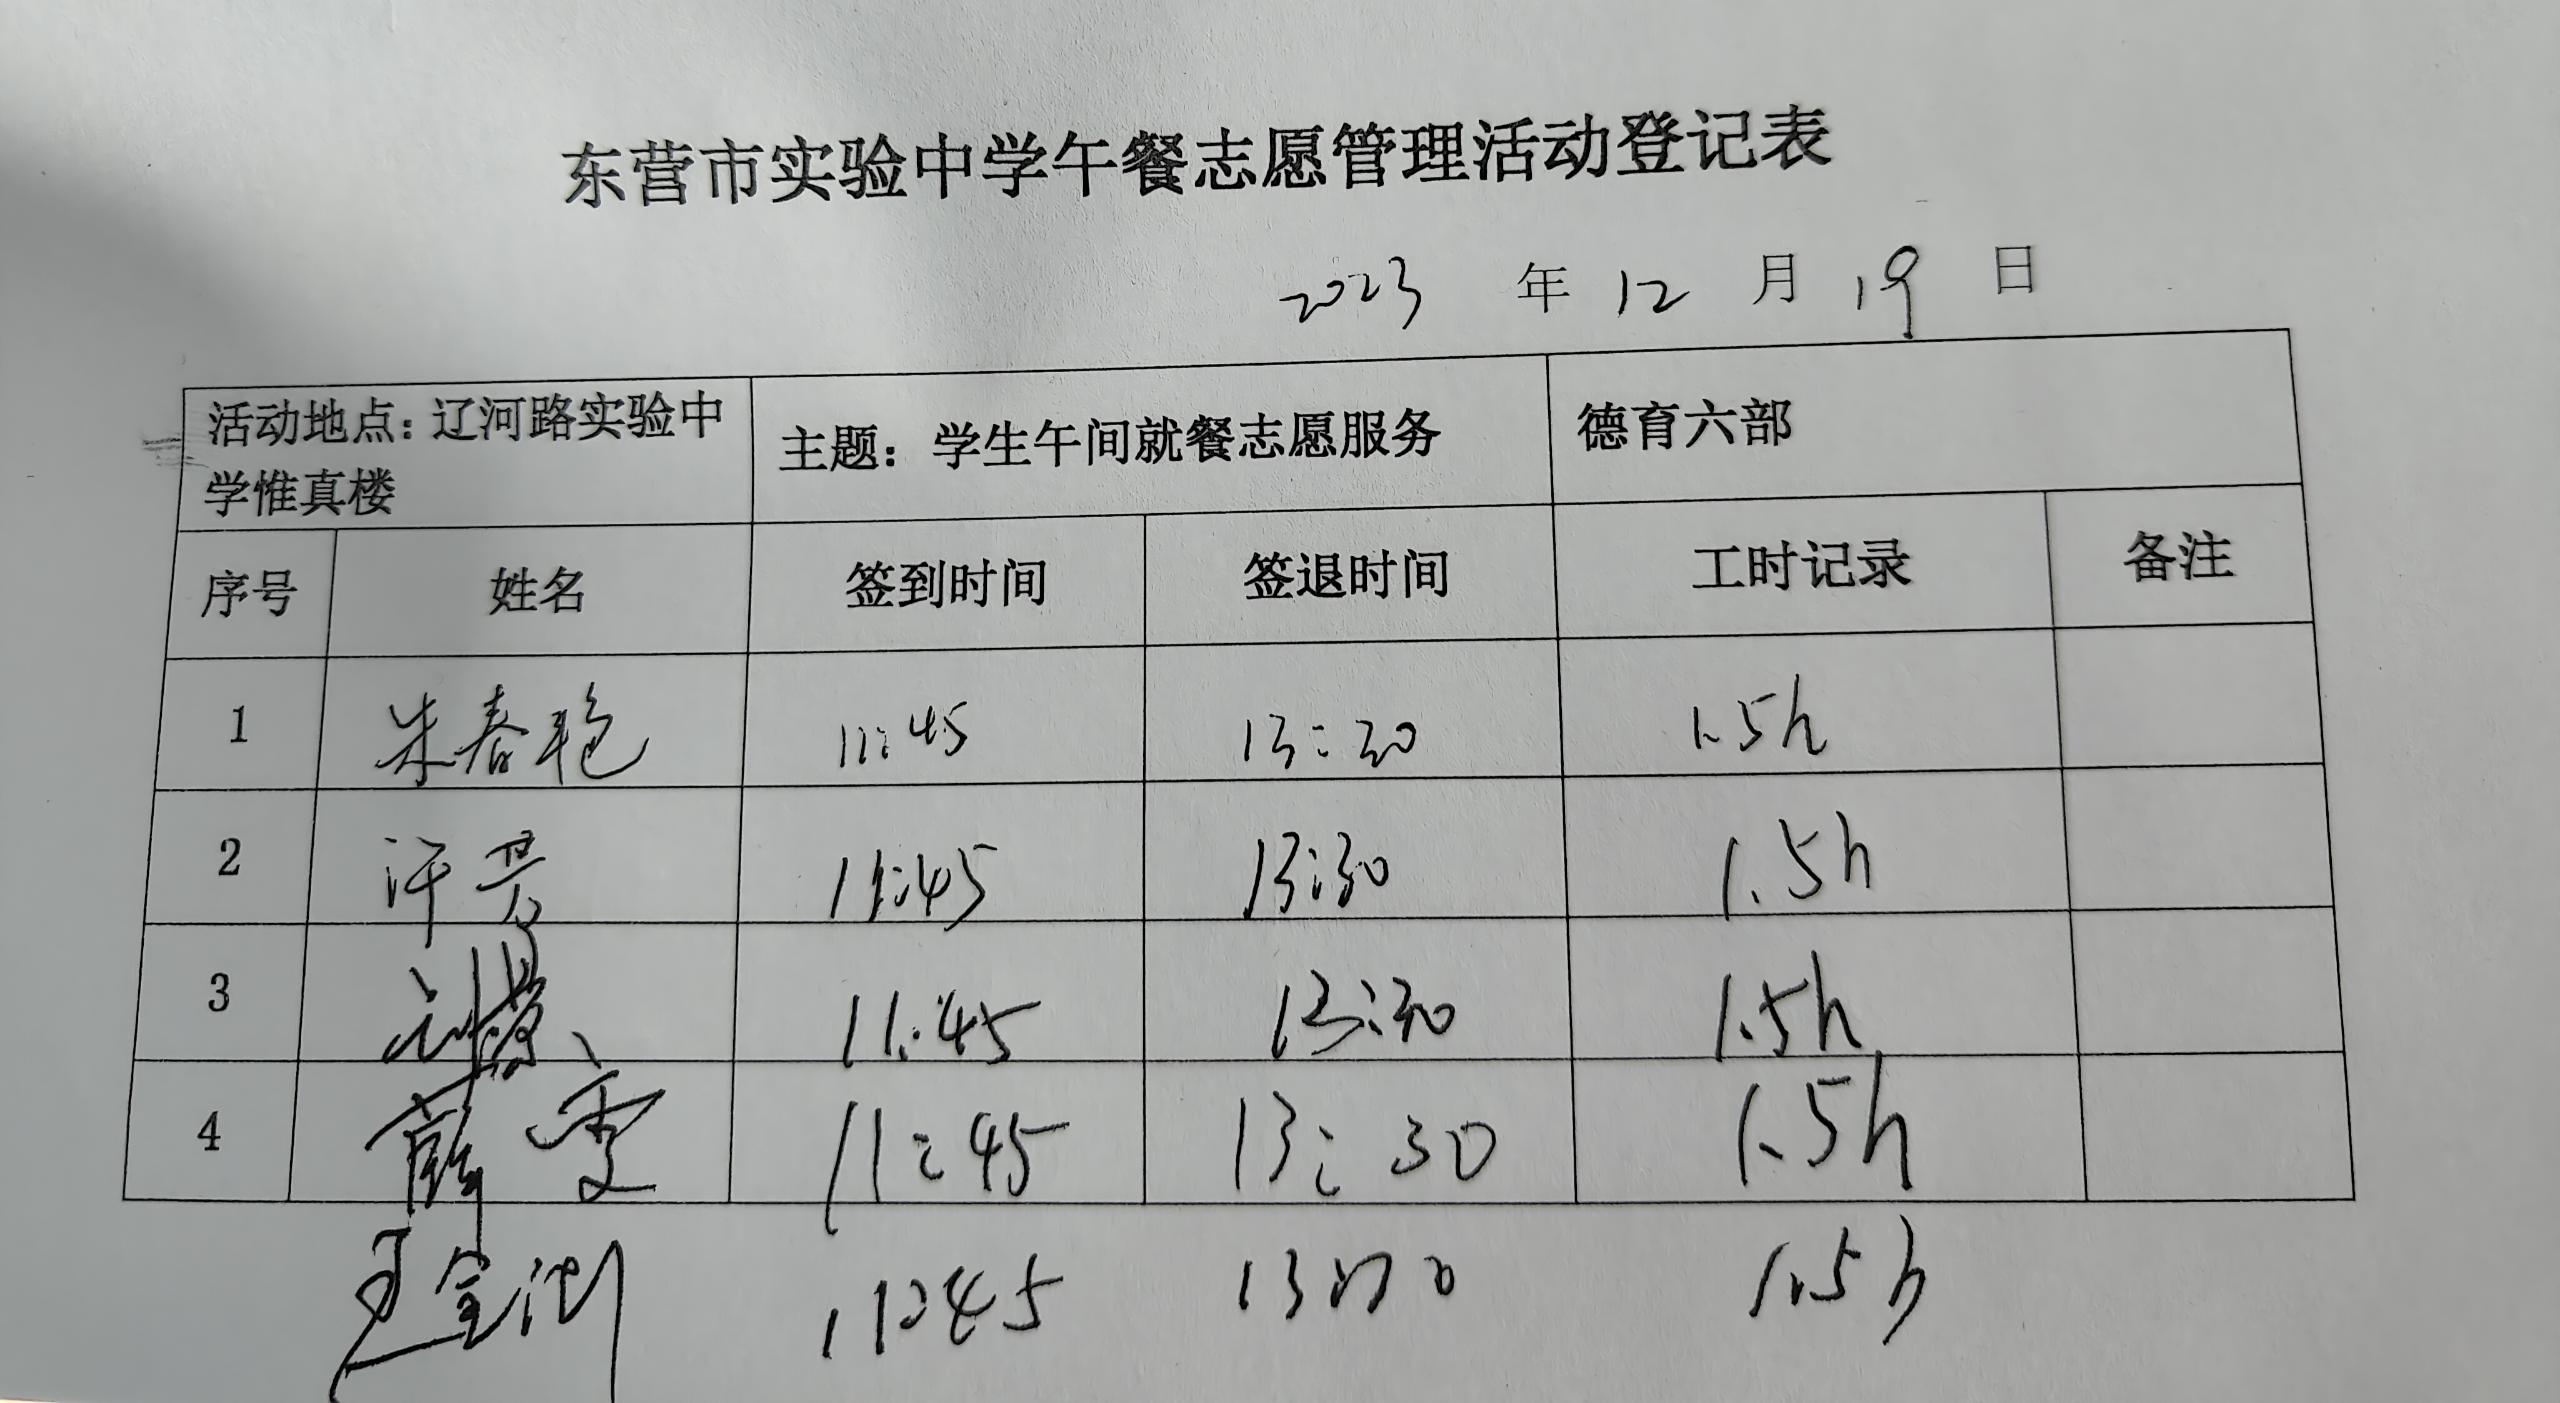 东营市实验中学午餐志愿管理活动登记表
2023 年 12 月 19 日
活动地点：辽河路实验中学惟真楼 主题：学生午间就餐志愿服务 德育六部
序号 姓名 签到时间 签退时间 工时记录 备注
1 朱春艳 11:45 13:30 1.5h
2 11:45 13:30 1.5h
3 11:45 13:30 1.5h
4 薛雯 11:45 13:30 1.5h
11:45 13:30 1.5h